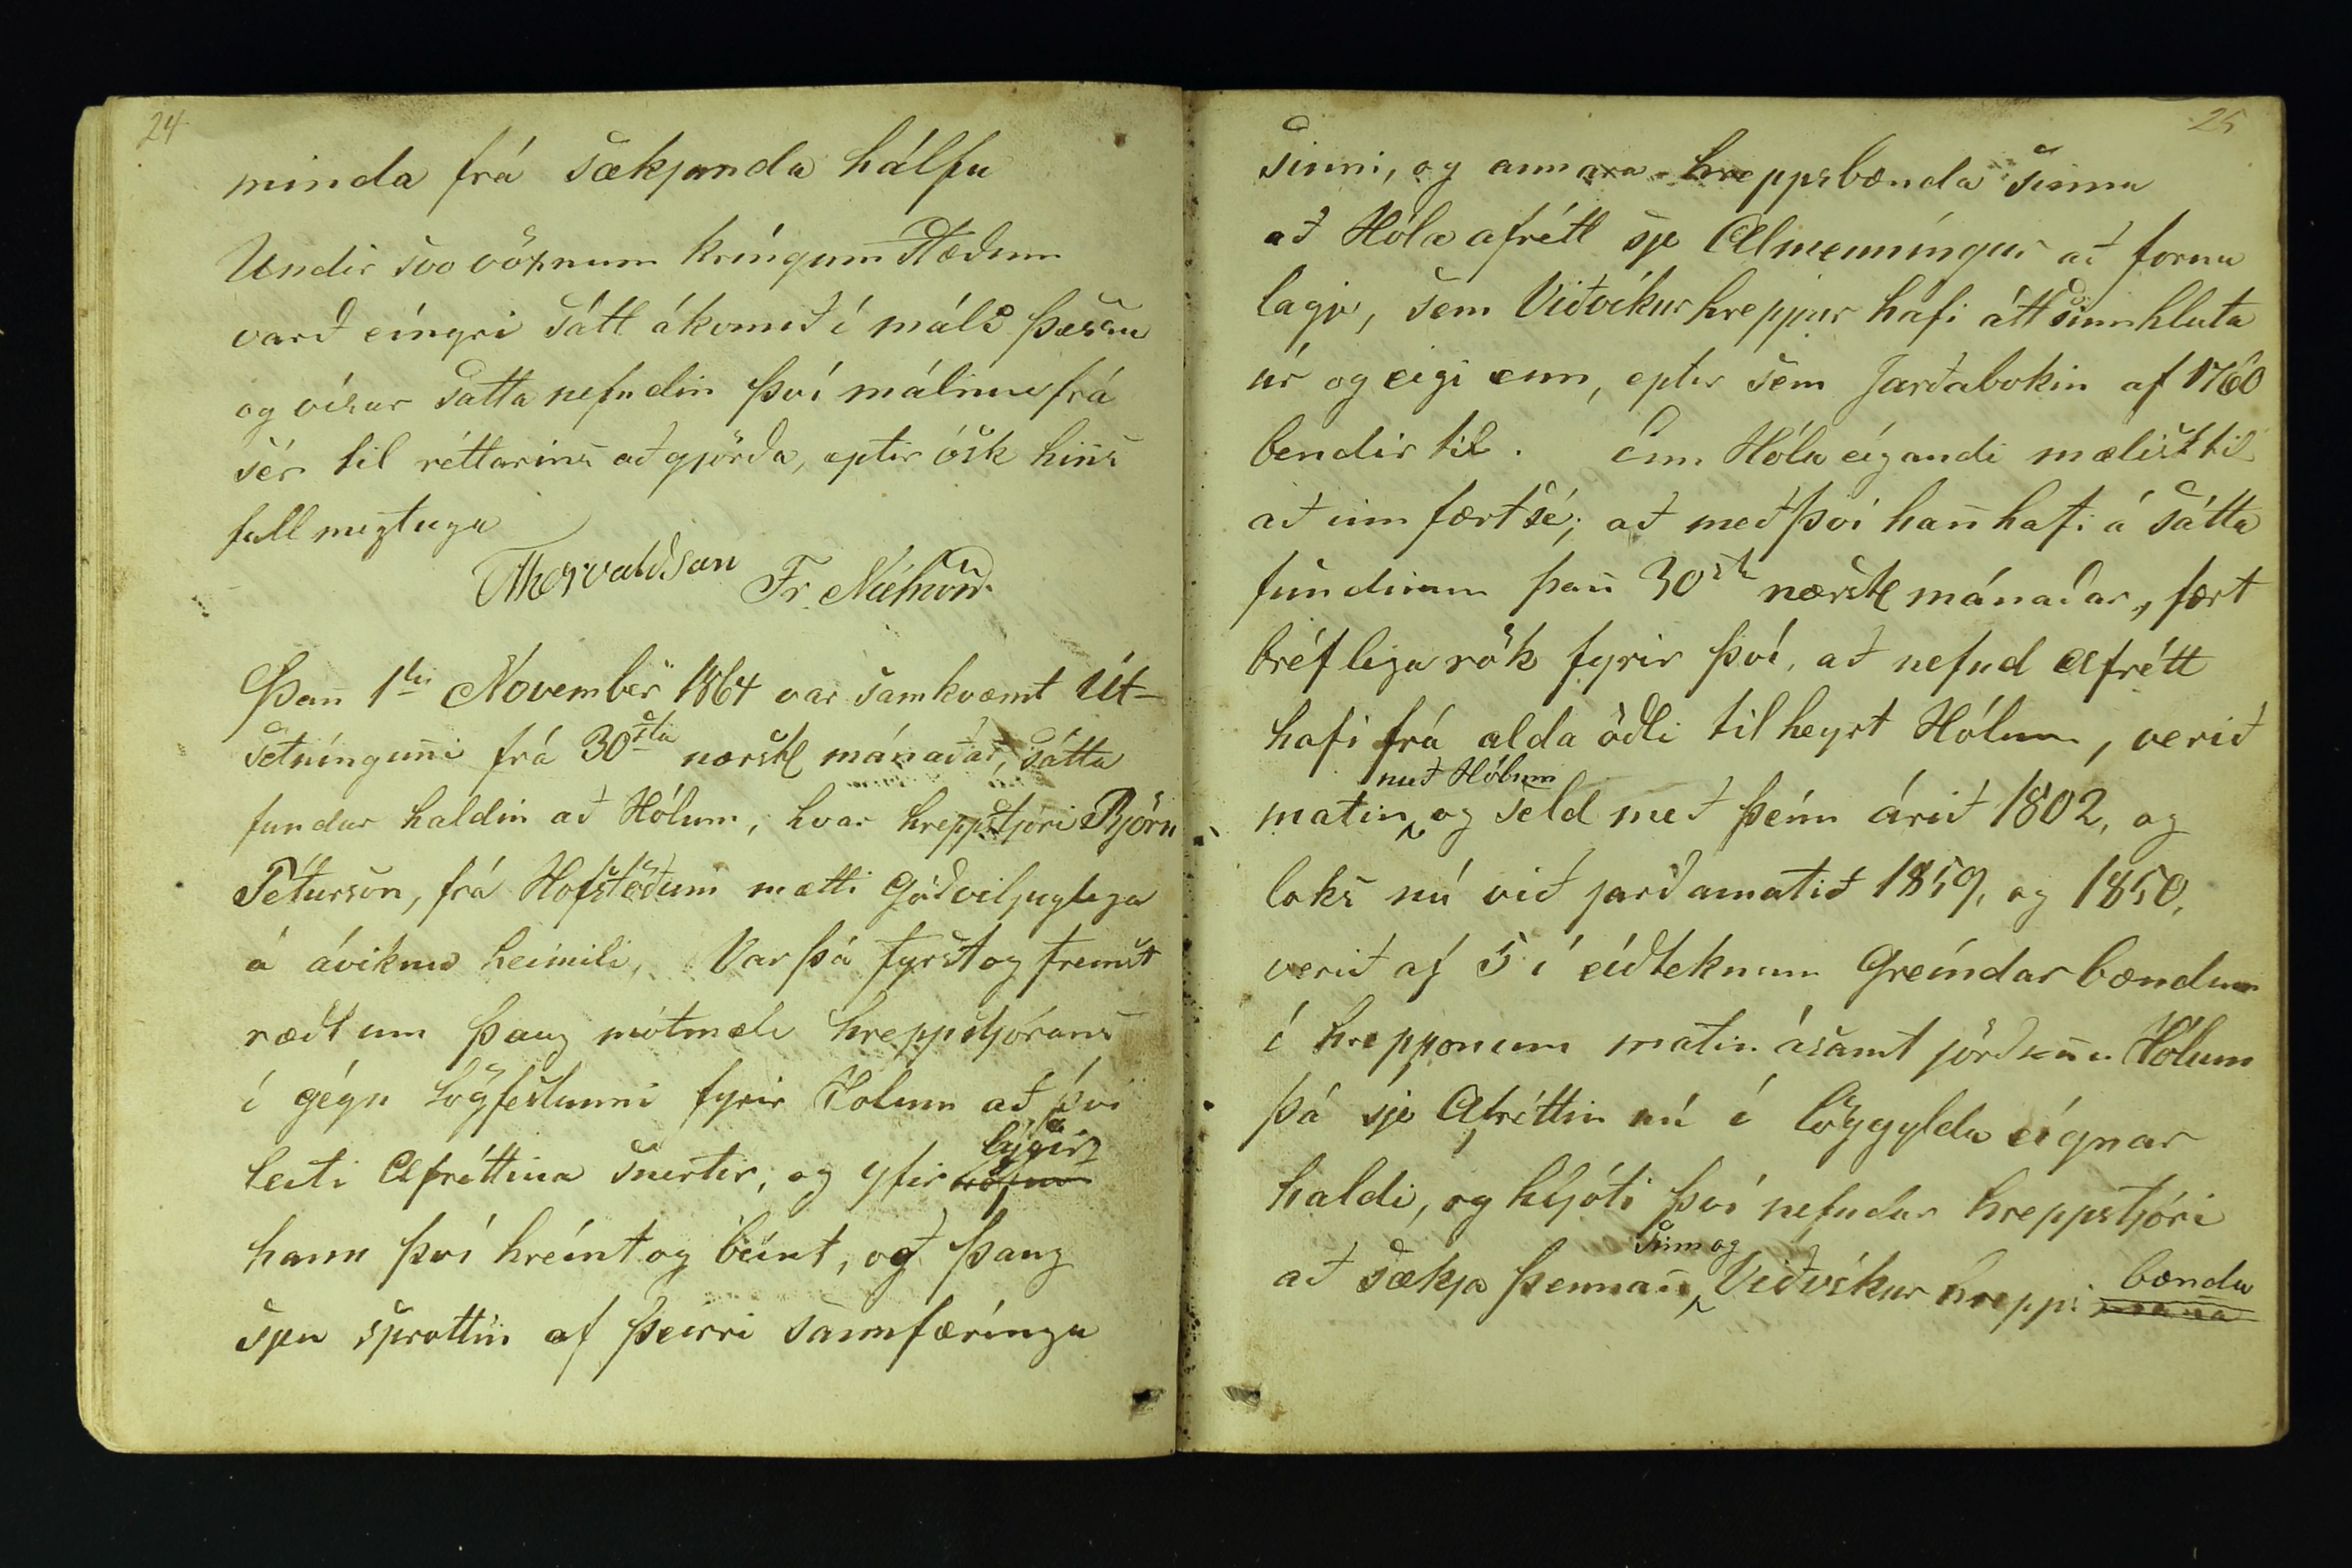 24
minda frá sækjanda hálfu
Undir svo vöxnum kríngumstæðum
varð eíngri sátt ákomið í máli þessu
og vísar sattanefndin því málinu frá
sér til réttarins aðgjörða, eptir ósk hins
fullmegtuga
Thorvaldsson Fr. Níelsson
Þan 1ta November 1864 var samkvæmt Út-
setníngunni frá 30sta næstl mánaðar, sátta
fundur haldin að Hólum, hvar hreppstjóri Björn
Péturson, frá Hofstöðum mætti góðviljuglega
á áviknu heimili, Var þá fyrst og fremst
ræðt um þaug mótmæli hreppstjórans
í gégn lögfestunni fyrir Holum að því
leiti Afréttina snertir, og yfir lýsir
hann því hreínt og beint, að þaug
sjeu sprottin af þeirri sannfæríngu
25
sinni, og annara hreppsbænda sinna
að Hóla afrétt sje Almenníngur að fornu
lagi, sem Viðvíkurhreppur hafi átt sinn hluta
úr og eigi enn, eptir sem Jarðabokin af 1760
bendir til. Enn Hóla eígandi mælist til
að inn fært sé; að með því hann hafi á sátta
fundinum þan 30sta næstl mánaðar, fært
bréflega rök fyrir því, að nefnd Afrétt
hafi frá alda öðli tilheyrt Hólum, verið
með Hólum
matin og seld með þeím árið 1802, og
loks nú við jarðamatið 1859, og 1850,
verið af 5 í eíðteknum Greíndar bændum
í hrepponum matin ásamt jörðunni Hólum
þá sje Afréttin nú í löggyldu eígnar
haldi, og hljóti því nefndur hreppstjóri
sinn og
að sækja þennan Viðvíkur hreppi bænda